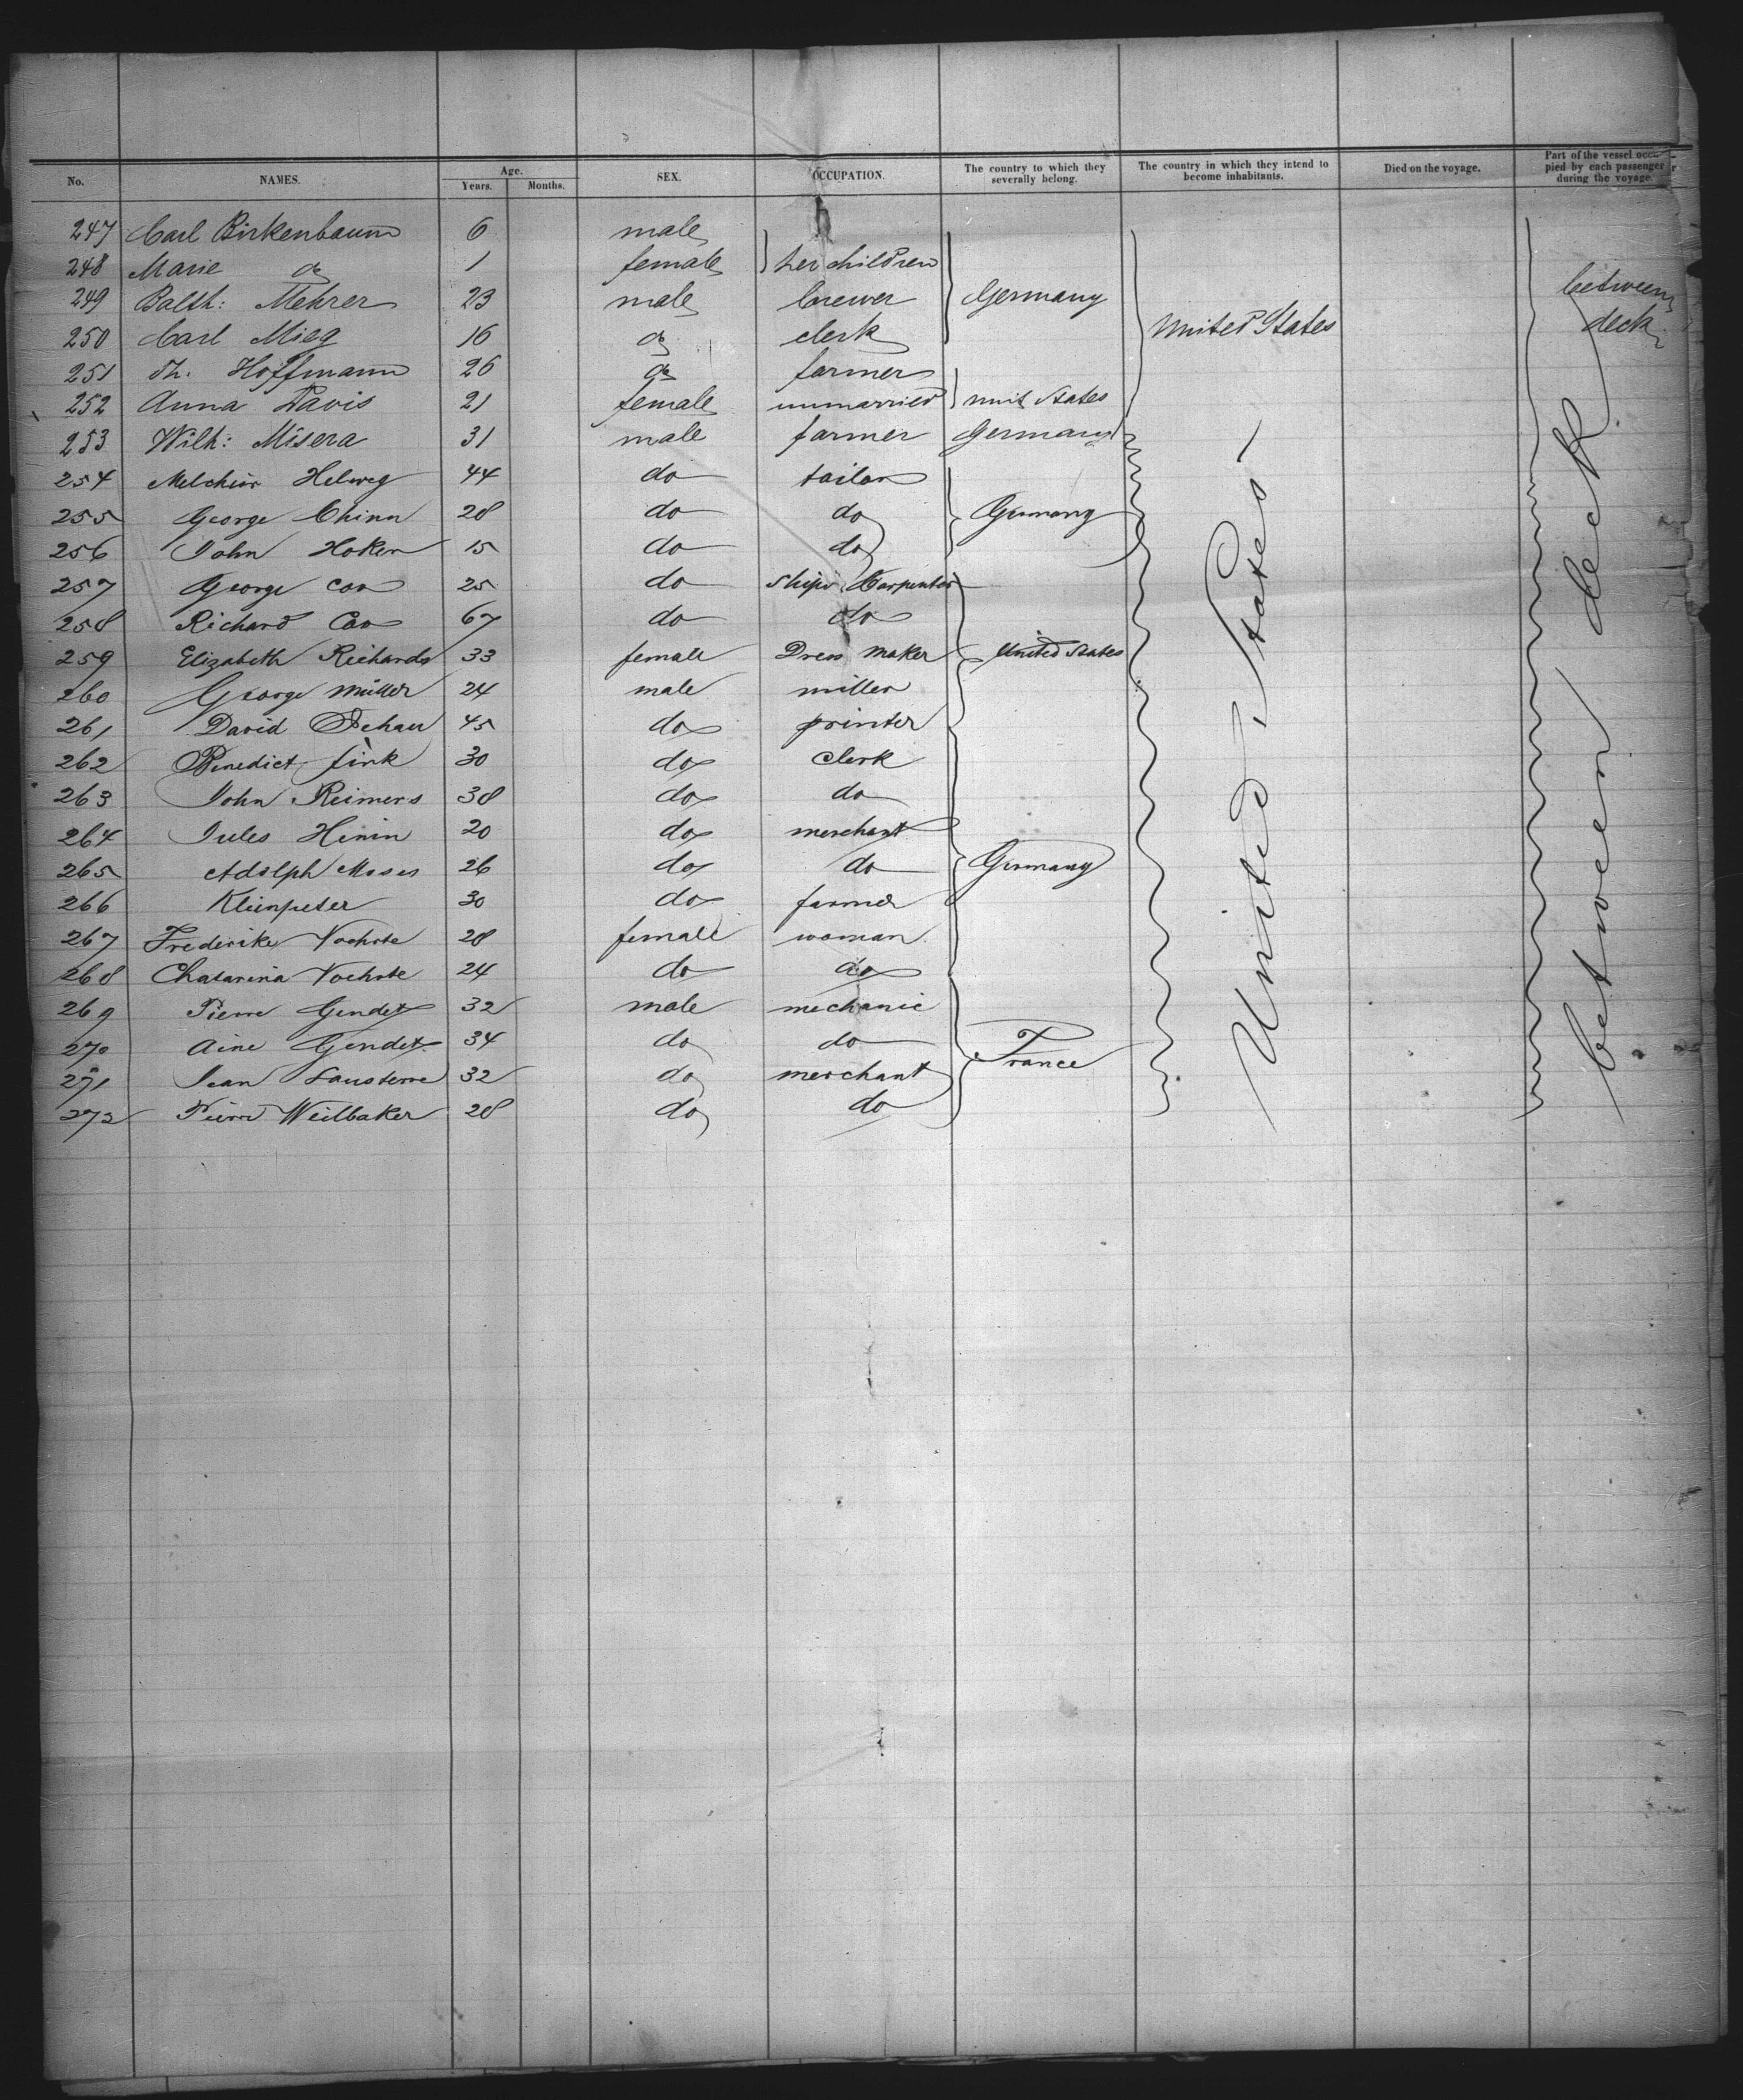 No. NAMES. Age. Years. Months. SEX. OCCUPATION. The country to which they severally belong. The country in which they intend to become inhabitants. Died on the voyage. Part of the vessel occupied by each passenger during the voyage.
247 Carl Birkenbaum 6 male
248 Marie do 1 female } her children
249 Balth: Mehrer 23 male brewer } Germany between
250 Carl Mieg 16 do clerk United States deck
251 Th. Hoffmann 26 do farmer
252 Anna Davis 21 female unmarried } unit States
253 Wilh: Misera 31 male farmer Germany
254 Melchior Helweg 44 do tailor
255 George Chinn 28 do do } Germany
256 John Hoken 15 do do
257 George Cox 25 do Ships Carpenter
258 Richard Cox 67 do do
259 Elizabeth Richards 33 female Dress maker } United States
260 George Müller 24 male miller
261 David Schau 45 do printer
262 Benedict Fink 30 do Clerk
263 John Reimers 38 do do
264 Jules Henin 20 do merchant
265 Adolph Moses 26 do do } Germany
266 Kleinpeter 30 do farmer
267 Frederike 28 female woman
268 Chatarina 24 do do
269 Pierre Gendet 32 male mechanic
270 Aine Gendet 34 do do } France
271 Jean 32 do merchant
272 Pierre Weilbaker 28 do do
United States
between deck